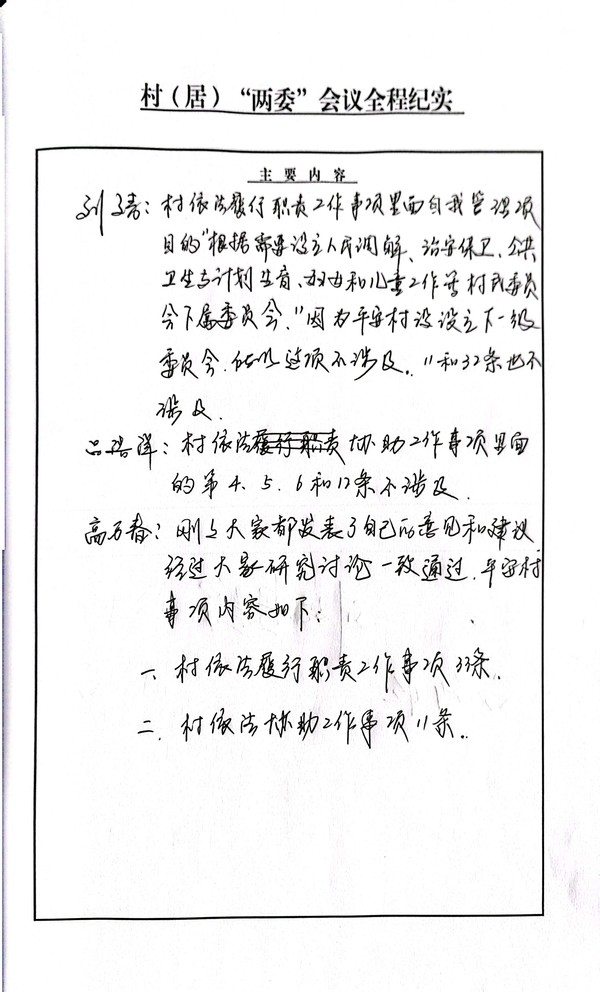 村（居）“两委”会议全程纪实
主要内容
刘涛：村依法履行职责工作事项里面自我管理项
目的“根据需要设立人民调解、治安保卫、公共
卫生与计划生育、妇女和儿童工作等村民委员
会下属委员会。”因为平安村没设立下一级
委员会，所以这项不涉及。11和32条也不
涉及.
吕浩洋：村依法履行职责协助工作事项里面
的第4、5、6和12条不涉及.
高万春：刚才大家都发表了自己的意见和建议
经过大家研究讨论一致通过，平安村
事项内容如下：
一、村依法履行职责工作事项33条.
二、村依法协助工作事项11条.